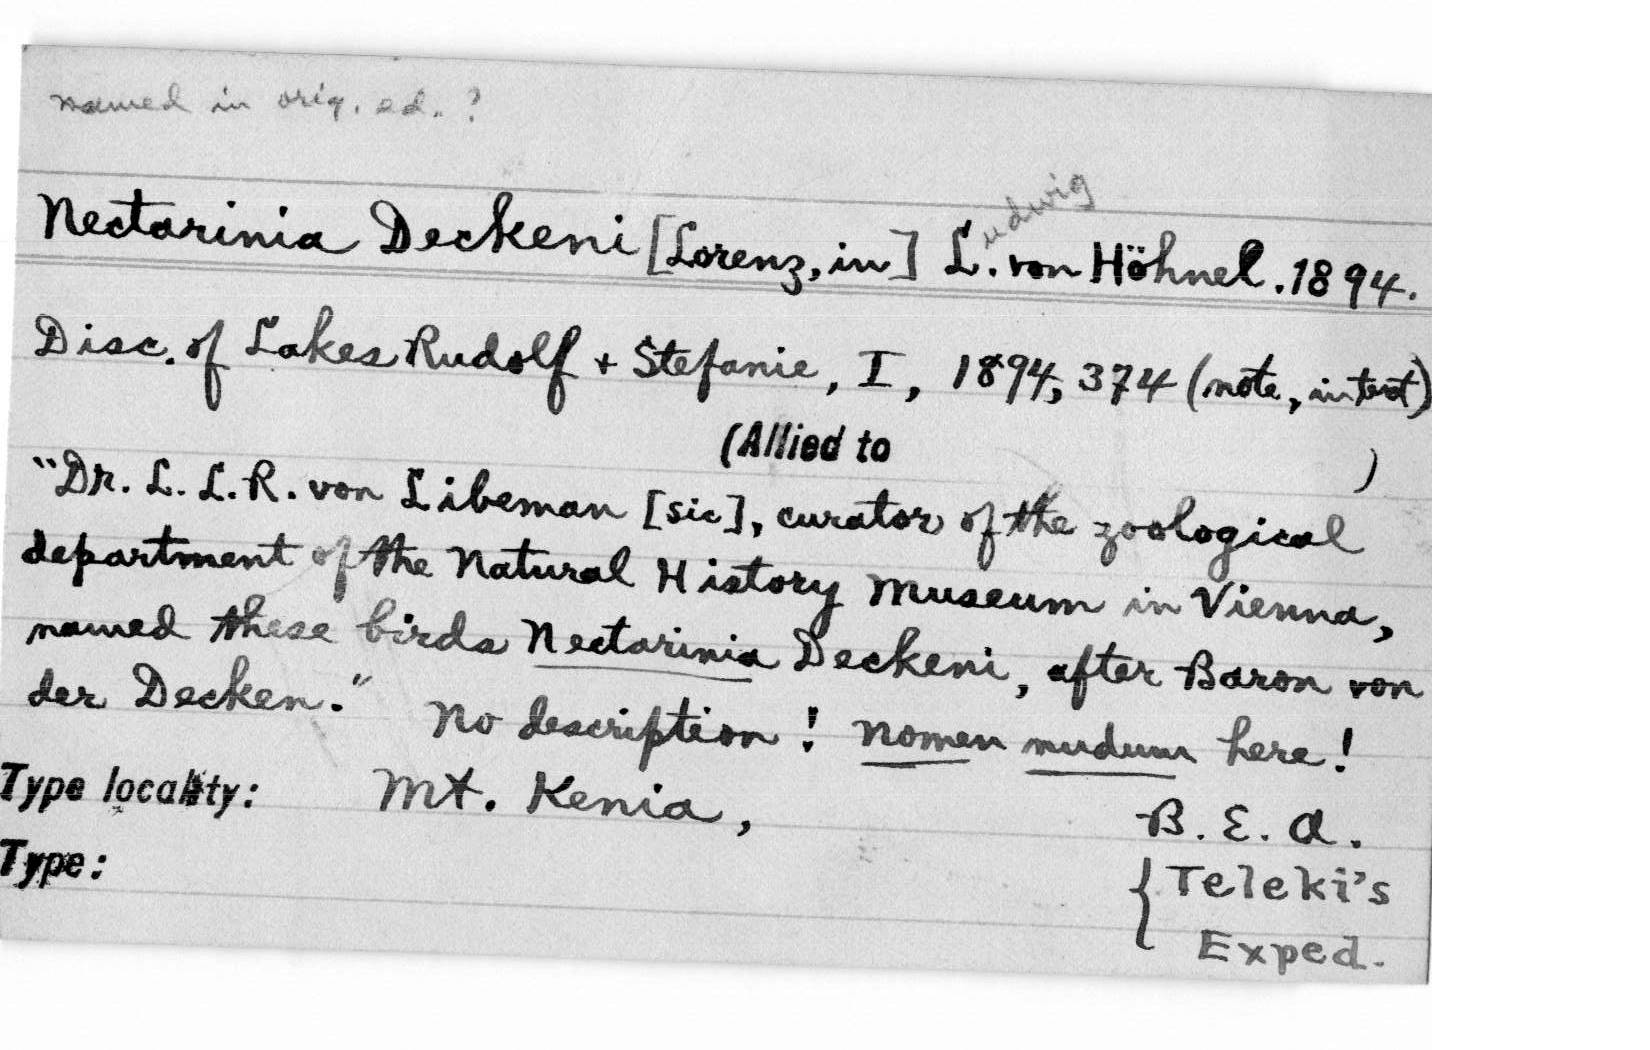 named in orig. ed. ?
Nectarinia Deckeni [Lorenz, in] L.udwig von Höhnel. 1894.
Disc. of Lakes Rudolf + Stefanie, I, 1894, 374 (note, in text)
(Allied to )
"Dr. L. L. R. von Libeman [sic], curator of the zoological
department of the Natural History Museum in Vienna,
named these birds Nectarinia Deckeni, after Baron von
der Decken." No description ! Nomen nudum here !
Type locality: Mt. Kenia, B. E. A.
Type: { Teleki's
Exped.